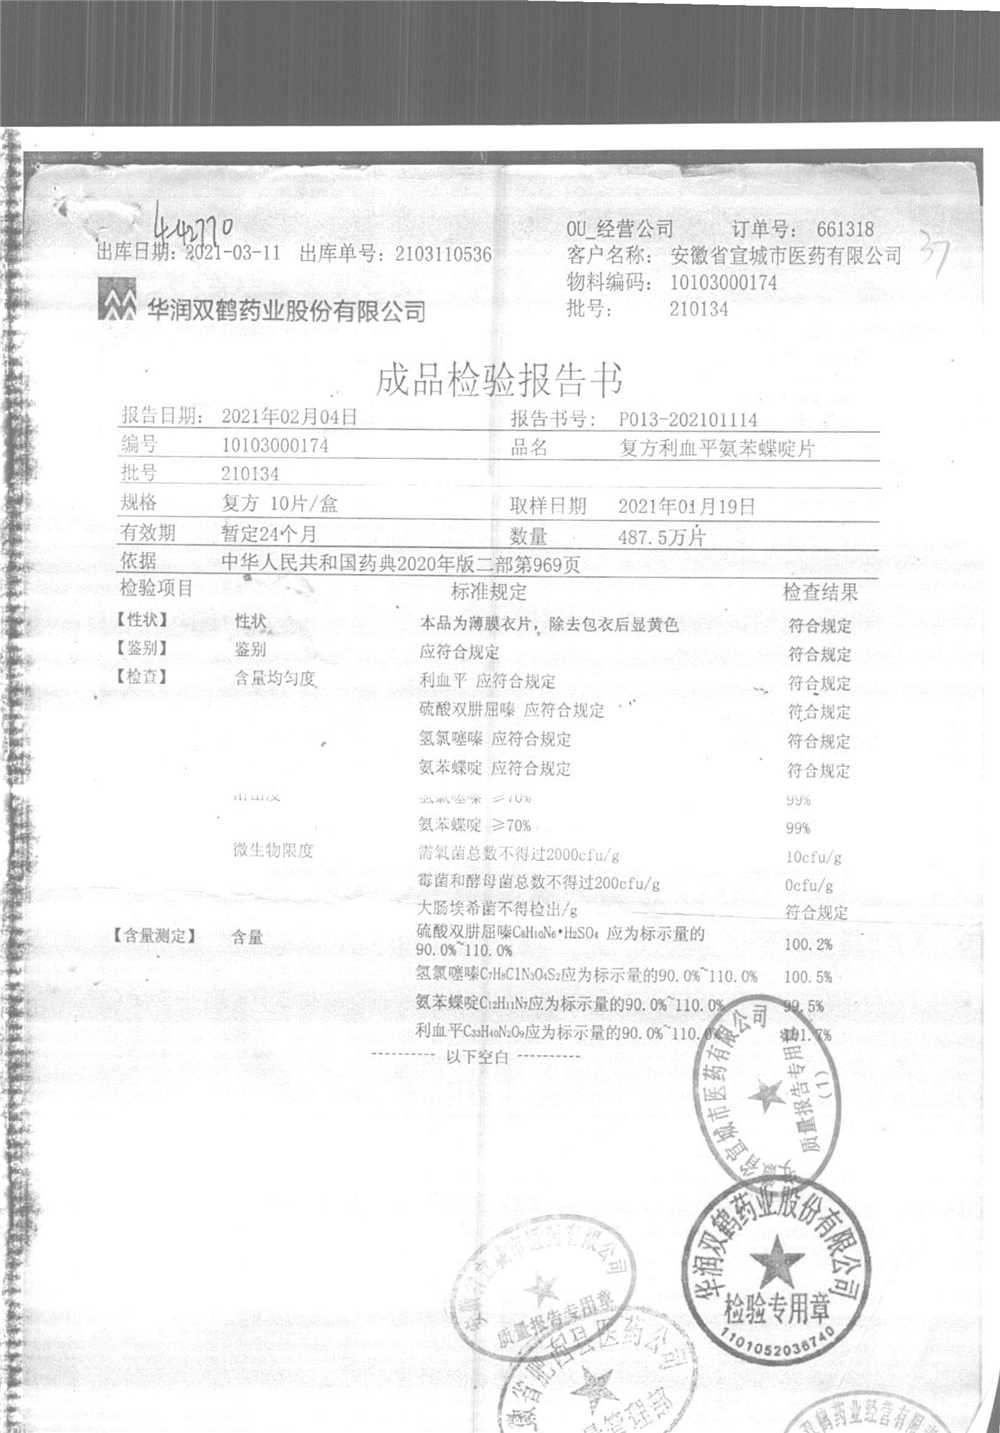 442770
37
出库日期: 2021-03-11 出库单号: 2103110536
OU_经营公司 订单号: 661318
客户名称: 安徽省宣城市医药有限公司
物料编码: 10103000174
批号: 210134
华润双鹤药业股份有限公司
成品检验报告书
报告日期: 2021年02月04日 报告书号: P013-202101114
编号 10103000174 品名 复方利血平氨苯蝶啶片
批号 210134
规格 复方 10片/盒 取样日期 2021年01月19日
有效期 暂定24个月 数量 487.5万片
依据 中华人民共和国药典2020年版二部第969页
检验项目 标准规定 检查结果
【性状】 性状 本品为薄膜衣片, 除去包衣后显黄色 符合规定
【鉴别】 鉴别 应符合规定 符合规定
【检查】 含量均匀度 利血平 应符合规定 符合规定
硫酸双肼屈嗪 应符合规定 符合规定
氢氯噻嗪 应符合规定 符合规定
氨苯蝶啶 应符合规定 符合规定
溶出度 氢氯噻嗪 ≥70% 99%
氨苯蝶啶 ≥70% 99%
微生物限度 需氧菌总数不得过2000cfu/g 10cfu/g
霉菌和酵母菌总数不得过200cfu/g 0cfu/g
大肠埃希菌不得检出/g 符合规定
【含量测定】 含量 硫酸双肼屈嗪C8H10N6•H2SO4 应为标示量的 100.2%
90.0%~110.0%
氢氯噻嗪C7H8ClN3O4S2应为标示量的90.0%~110.0% 100.5%
氨苯蝶啶C12H11N7应为标示量的90.0%~110.0% 99.5%
利血平C33H40N2O9应为标示量的90.0%~110.0% 101.7%
---------- 以下空白 ----------
安徽省宣城市医药有限公司
质量报告专用章
(1)
华润双鹤药业股份有限公司
检验专用章
1101052036740
质量报告专用章
安徽省肥西县医药公司
双鹤药业经营有限